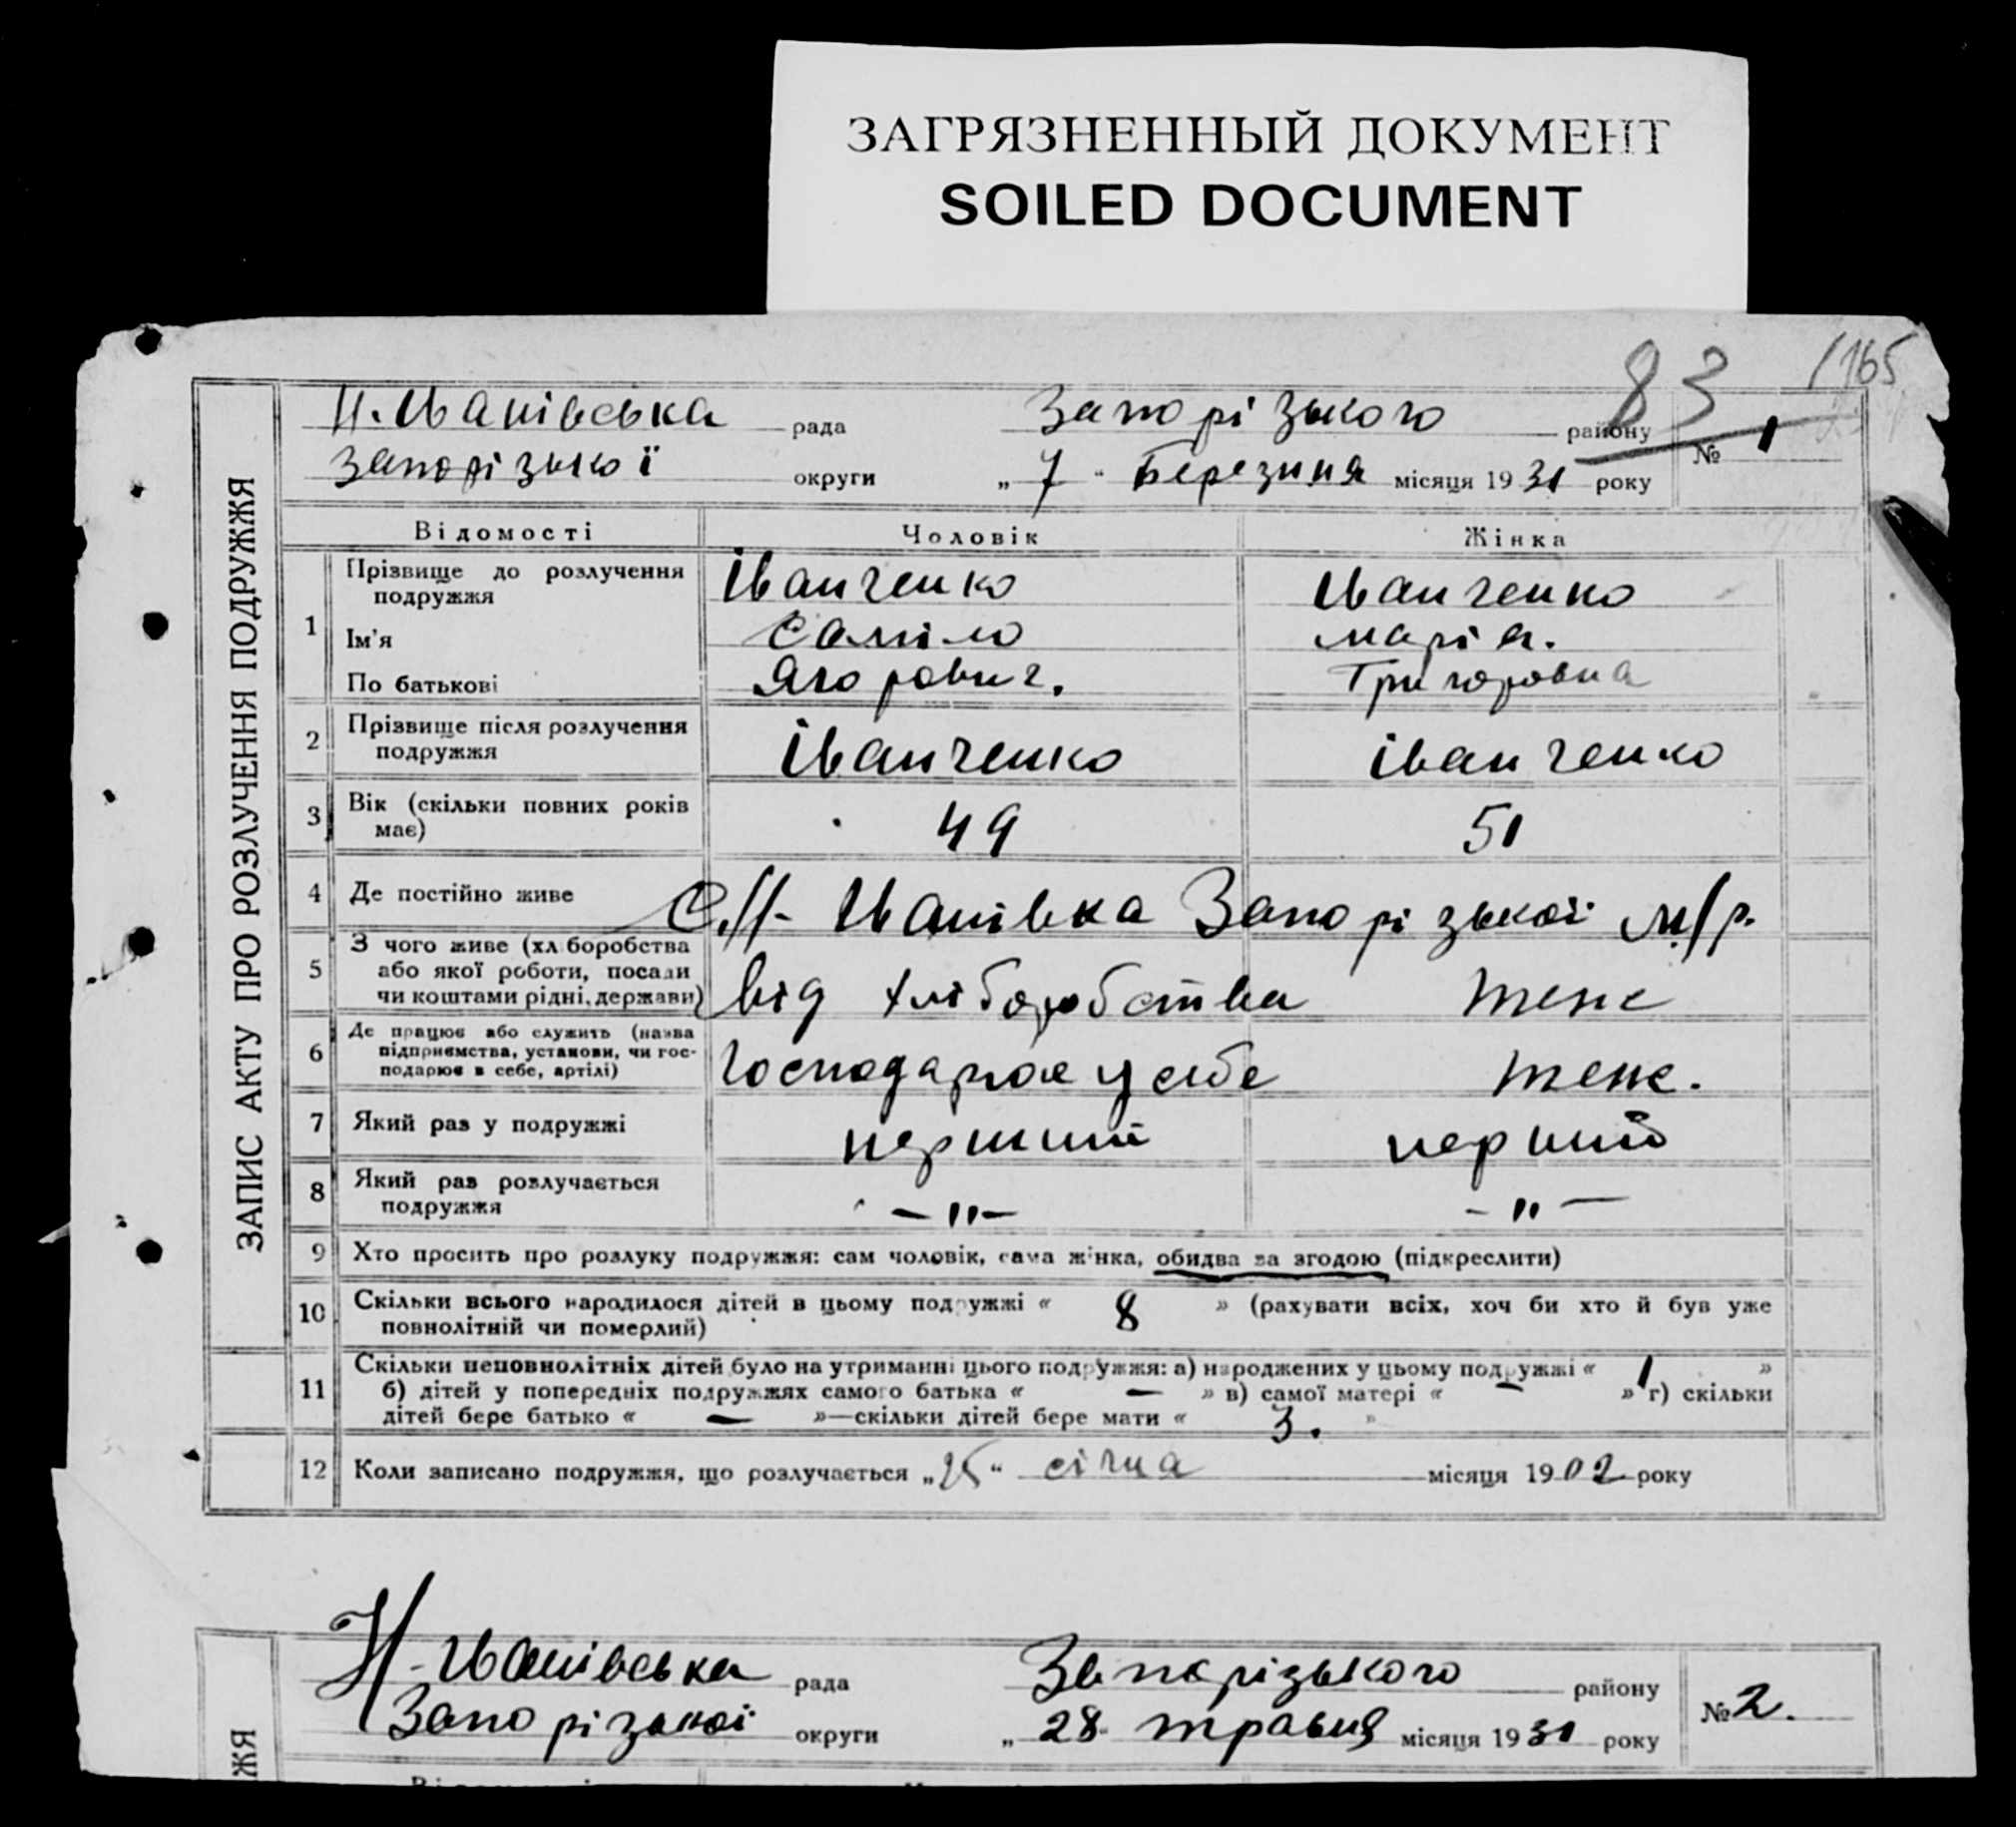 ЗАГРЯЗНЕННЫЙ ДОКУМЕНТ
SOILED DOCUMENT
83 165
ЗАПИС АКТУ ПРО РОЗЛУЧЕННЯ ПОДРУЖЖЯ
Н. Іванівська рада Запорізького району № 1
Запорізької округи „ 7 " Березня місяця 1931 року
Відомості Чоловік Жінка
1 Прізвище до розлучення подружжя Іванченко Іванченко
Ім'я Маріа.
По батькові Ягорович. Григоровна
2 Прізвище після розлучення подружжя Іванченко Іванченко
3 Вік (скільки повних років має) 49 51
4 Де постійно живе С. Н-Іванівка Запорізької м/р.
5 З чого живе (хліборобства або якої роботи, посади чи коштами рідні, держави) Від хліборобства теж
6 Де працює або служить (назва підприємства, установи, чи господарює в себе, артілі) Господарює у себе теж.
7 Який раз у подружжі перший перший
8 Який раз розлучається подружжя -"- -"-
9 Хто просить про розлуку подружжя: сам чоловік, сама жінка, обидва за згодою (підкреслити)
10 Скільки всього народилося дітей в цьому подружжі « 8 » (рахувати всіх, хоч би хто й був уже
повнолітній чи померлий)
11 Скільки неповнолітніх дітей було на утриманні цього подружжя: а) народжених у цьому подружжі « 1 »
б) дітей у попередніх подружжях самого батька « — » в) самої матері « — » г) скільки
дітей бере батько « — »—скільки дітей бере мати « 3. »
12 Коли записано подружжя, що розлучається „25" січна місяця 1902 року
Н-Іванівська рада Запорізького району № 2.
Запорізької округи „ 28 травня місяця 1931 року
ЖЯ